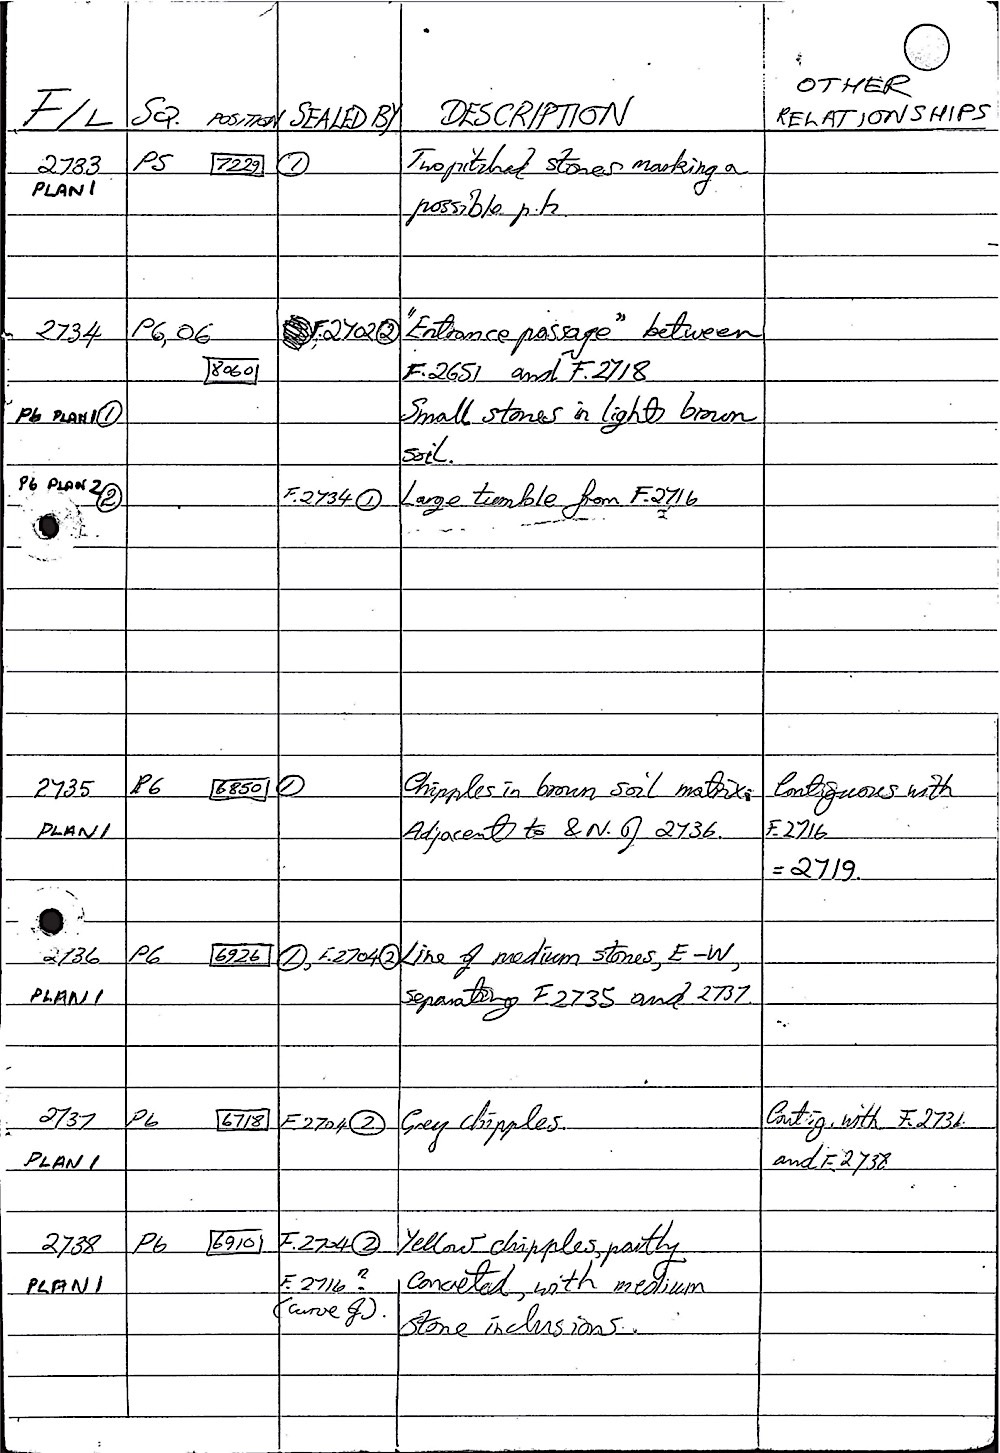 OTHER
F/L SQ. POSITION SEALED BY DESCRIPTION RELATIONSHIPS
2733 P5 7229 ① Two pitched stones marking a
PLAN 1
possible p.h.
2734 P6, O6 F.2702② "Entrance passage" between
8060 F.2651 and F.2718
P6 PLAN 1① Small stones in light brown
soil.
P6 PLAN 2② F.2734① Large tumble from F.2716
2735 P6 6850 ① Chipples in brown soil matrix. Contiguous with
PLAN 1 Adjacent to & N. of 2736. F.2716
= 2719.
2736 P6 6926 ①, F.2704② Line of medium stones, E-W,
PLAN 1 separating F.2735 and 2737.
2737 P6 6718 F.2704② Grey chipples. Contig. with F.2736
PLAN 1 and F.2738
2738 P6 6910 F.2704② Yellow chipples, partly
PLAN 1 F.2716? concreted, with medium
(curve of). stone inclusions.